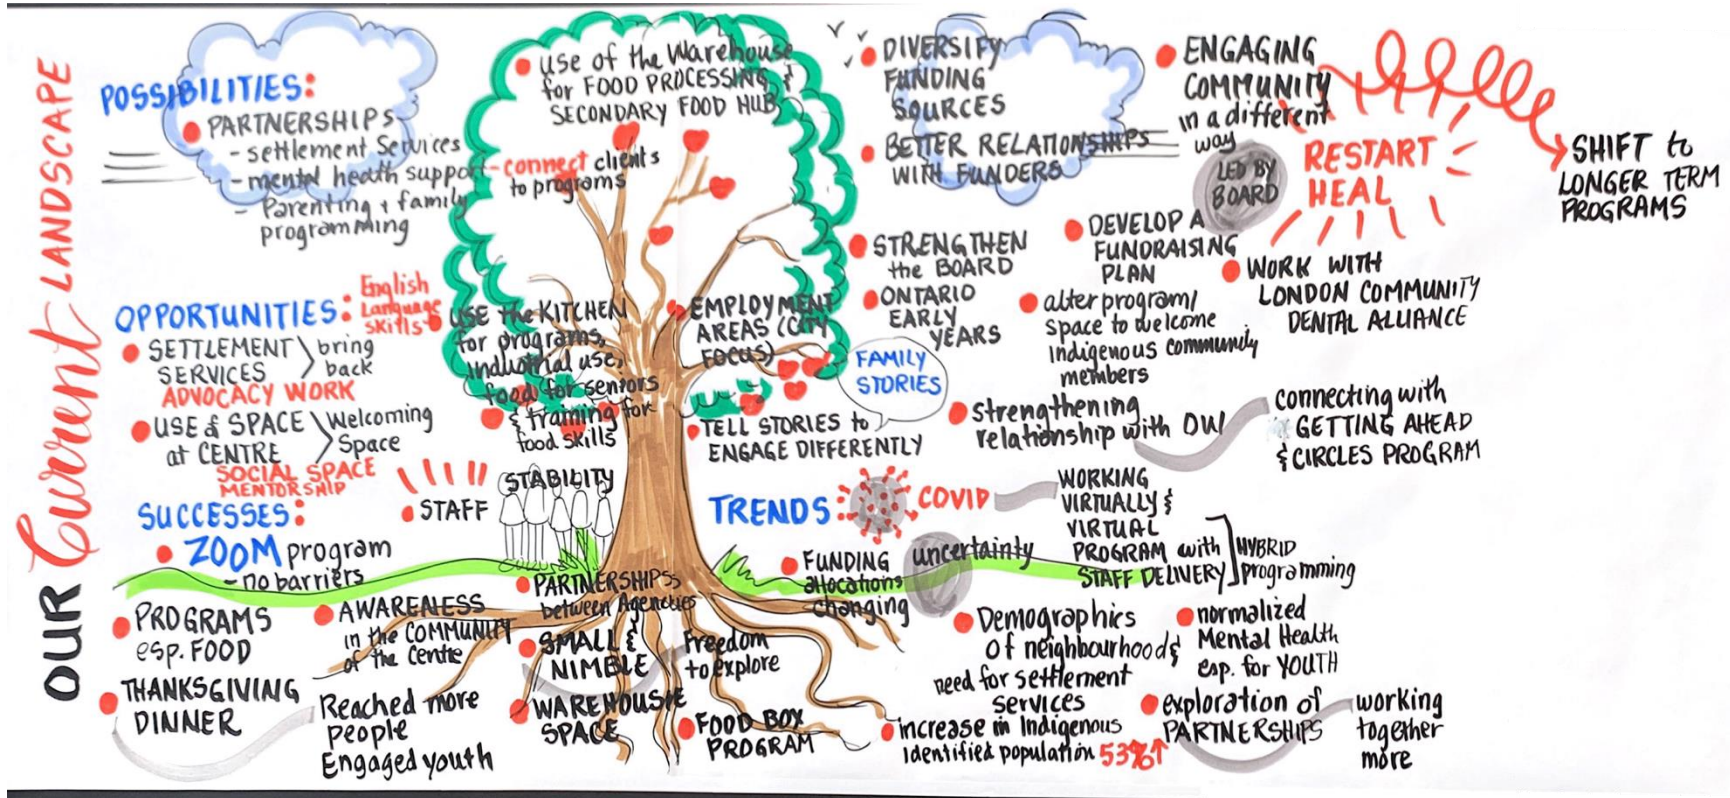 OUR Current LANDSCAPE
POSSIBILITIES:
PARTNERSHIPS
- settlement Services
- mental health support - connect clients
to programs
- Parenting + family
programming
use of the Warehouse
for FOOD PROCESSING &
SECONDARY FOOD HUB
DIVERSIFY
FUNDING
SOURCES
BETTER RELATIONSHIPS
WITH FUNDERS
ENGAGING
COMMUNITY
in a different
way
LED BY
BOARD
RESTART
HEAL
SHIFT to
LONGER TERM
PROGRAMS
OPPORTUNITIES:
English
Language
skills
SETTLEMENT
SERVICES
bring
back
ADVOCACY WORK
USE of SPACE
at CENTRE
Welcoming
Space
SOCIAL SPACE
MENTORSHIP
USE the KITCHEN
for programs,
industrial use,
food for seniors
& training for
food skills
EMPLOYMENT
AREAS (CITY
FOCUS)
TELL STORIES to
ENGAGE DIFFERENTLY
FAMILY
STORIES
STRENGTHEN
the BOARD
ONTARIO
EARLY
YEARS
DEVELOP A
FUNDRAISING
PLAN
alter program/
space to welcome
Indigenous community
members
WORK WITH
LONDON COMMUNITY
DENTAL ALLIANCE
strengthening
relationship with OW
connecting with
GETTING AHEAD
& CIRCLES PROGRAM
SUCCESSES:
STAFF
STABILITY
ZOOM program
- no barriers
PROGRAMS
esp. FOOD
AWARENESS
in the COMMUNITY
of the Centre
THANKSGIVING
DINNER
Reached more
people
Engaged youth
PARTNERSHIPS
between Agencies
SMALL &
NIMBLE
Freedom
to explore
WAREHOUSE
SPACE
FOOD BOX
PROGRAM
TRENDS:
COVID
WORKING
VIRTUALLY &
VIRTUAL
PROGRAM with
STAFF DELIVERY
HYBRID
programming
FUNDING
allocations
changing
uncertainty
Demographics
of neighbourhood &
need for settlement
services
normalized
Mental Health
esp. for YOUTH
increase in Indigenous
Identified population 53%↑
exploration of
PARTNERSHIPS
working
together
more